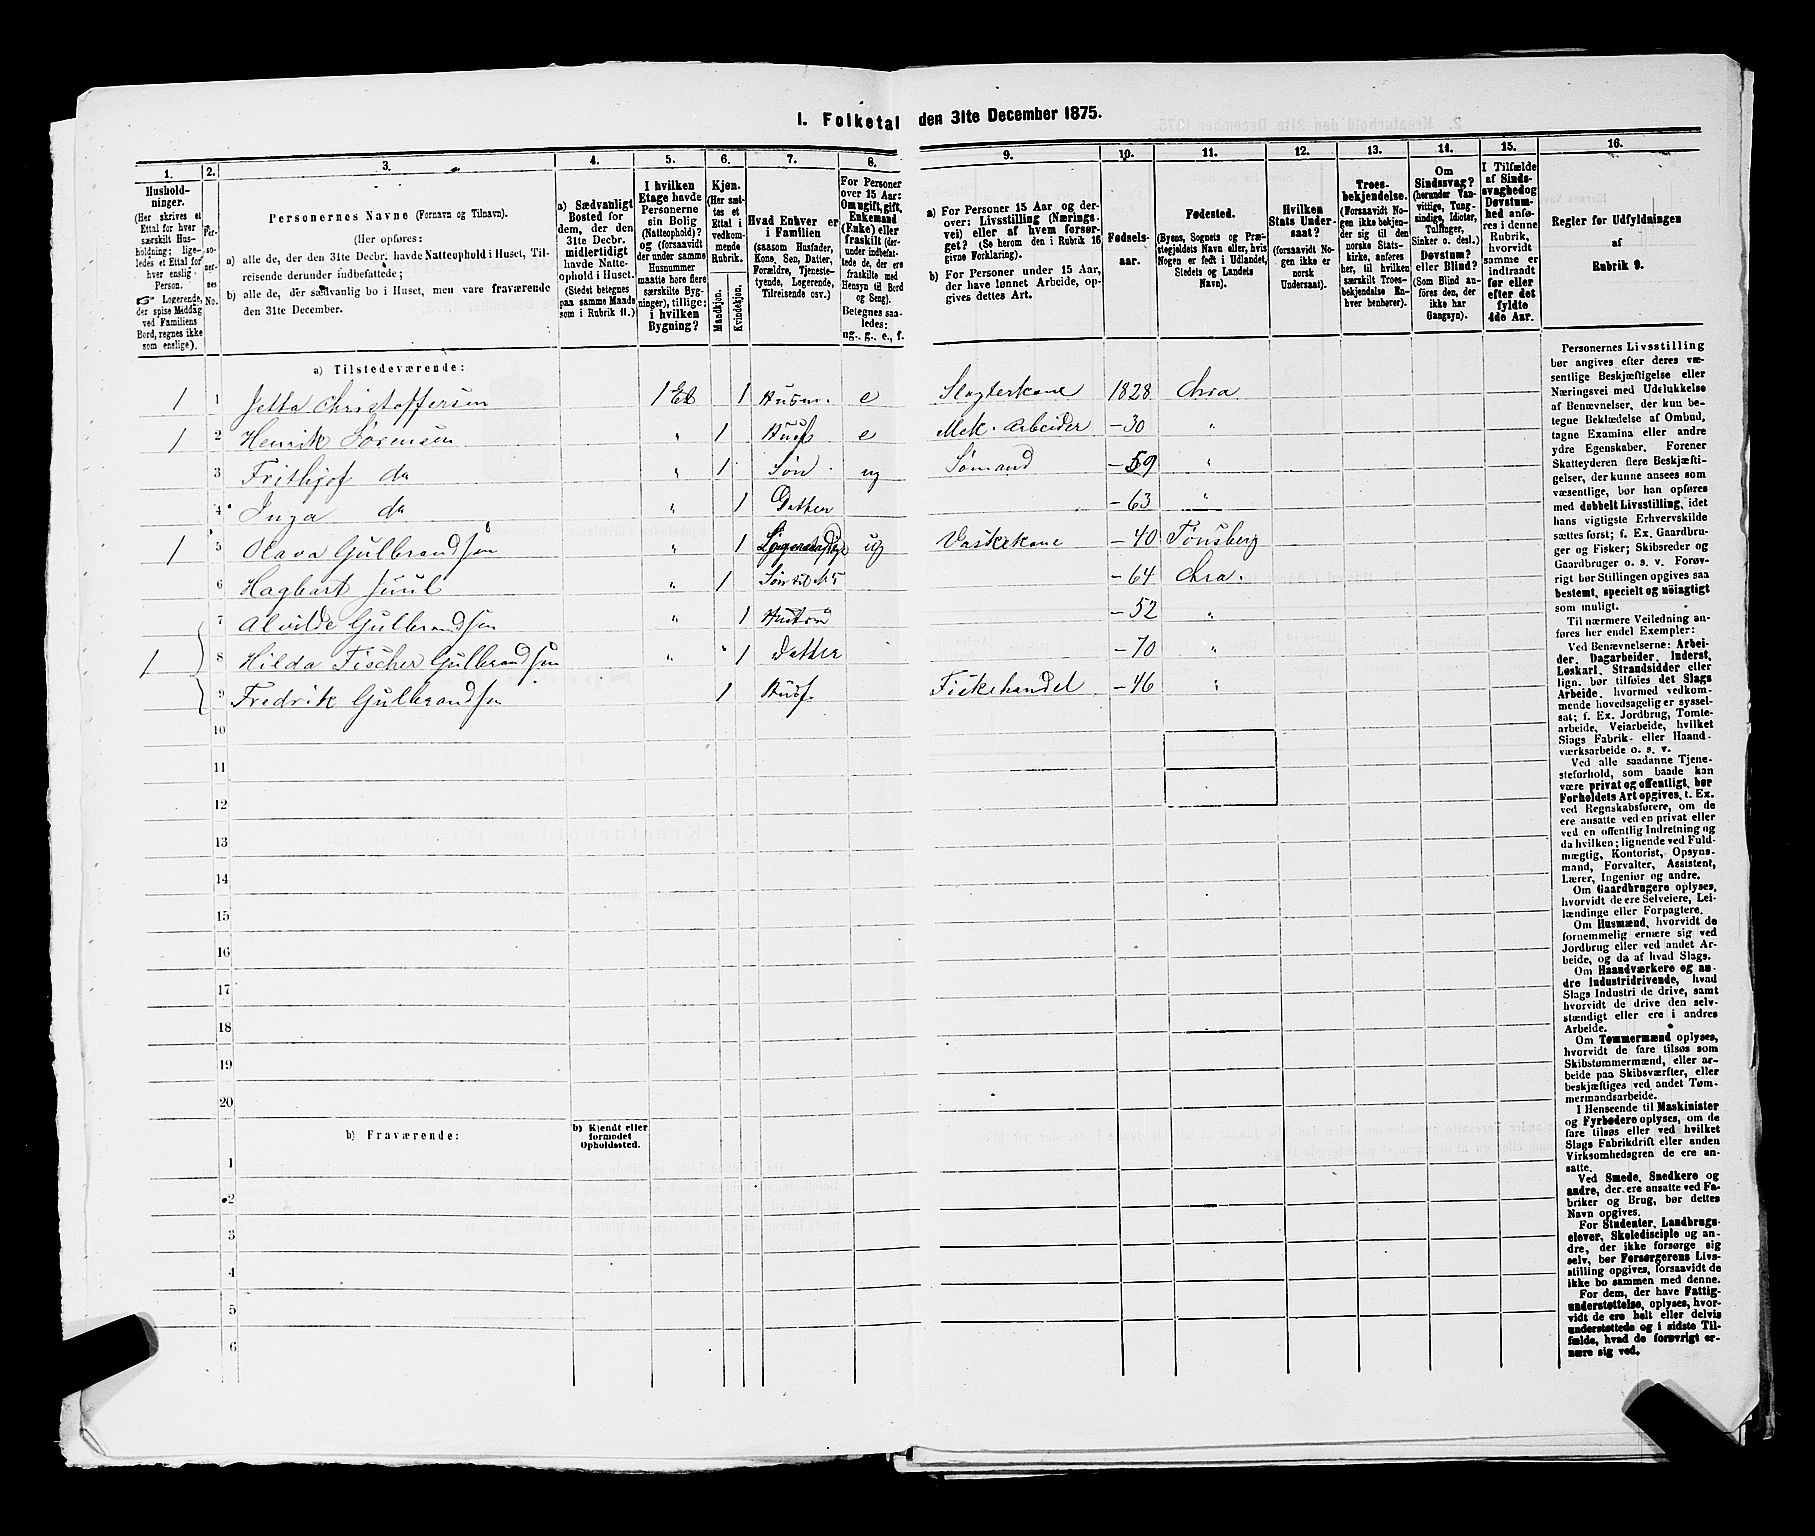 1. Folketal den 31te December 1875.
1. 2. 3. 4. 5. 6. 7. 8. 9. 10. 11. 12. 13. 14. 15. 16.
Hushold-
ninger.
(Her skrives et
Ettal for hver
særskilt Hus-
holdning; lige-
ledes et Ettal for
hver enslig
Person.
☞ Logerende,
der spise Middag
ved Familiens
Bord, regnes ikke
som enslige).
Per-
so-
ner-
nes
No.
Personernes Navne (Fornavn og Tilnavn).
(Her opføres:
a) alle de, der den 31te Decbr. havde Natteophold i Huset, Til-
reisende derunder indbefattede;
b) alle de, der sædvanlig bo i Huset, men vare fraværende
den 31te December.
a) Sædvanligt
Bosted for
dem, der den
31te Decbr.
midlertidigt
havde Natte-
ophold i Huset.
(Stedet betegnes
paa samme Maade
som i Rubrik 11.)
I hvilken
Etage havde
Personerne
sin Bolig
(Natteophold)?
og (forsaavidt
der under samme
Husnummer
maatte høre flere
særskilte Byg-
ninger), tillige:
i hvilken
Bygning?
Kjøn.
(Her sæt-
tes et
Ettal i
vedkom-
mende
Rubrik.
Mandkjøn.
Kvindekjøn.
Hvad Enhver er
i Familien
(saasom Husfader,
Kone, Søn, Datter,
Forældre, Tjeneste-
tyende, Logerende,
Tilreisende osv.)
For Personer
over 15 Aar:
Om ugift, gift,
Enkemand
(Enke) eller
fraskilt (der-
under indbefat-
tede de, der ere
fraskilte med
Hensyn til Bord
og Seng).
Betegnes saa-
ledes:
ug., g., e., f.
a) For Personer 15 Aar og der-
over: Livsstilling (Nærings-
vei) eller af hvem forsør-
get? (Se herom den i Rubrik 16
givne Forklaring).
b) For Personer under 15 Aar,
der have lønnet Arbeide, op-
gives dettes Art.
Fødsels-
aar.
Fødested.
(Byens, Sognets og Præ-
stegjeldets Navn eller, hvis
Nogen er født i Udlandet,
Stedets og Landets
Navn).
Hvilken
Stats Under-
saat?
(forsaavidt No-
gen ikke er
norsk
Undersaat).
Troes-
bekjendelse.
(Forsaavidt No-
gen ikke bekjen-
der sig til den
norske Stats-
kirke, anføres
her, til hvilken
særskilt Troes-
bekjendelse En-
hver henhører).
Om
Sindssvag?
(herunder Van-
vittige, Tung-
sindige, Idioter,
Tullinger,
Sinker o. desl.)
Døvstum?
eller Blind?
(Som Blind an-
føres den, der
ikke har
Gangsyn).
I Tilfælde
af Sinds-
svaghed og
Døvstum-
hed anfø-
res i denne
Rubrik,
hvorvidt
samme er
indtraadt
før eller
efter det
fyldte
4de Aar.
Regler for Udfyldningen
af
Rubrik 9.
a) Tilstedeværende:
1 1 Jetta Christoffersen 1 Et 1 Husm. e Slagterkone 1828 Chra
1 2 Henrik Sørensen " 1 Husf e Mek. Arbeider -30 "
3 Frithjof do " 1 Søn ug Sømand -59 "
4 Inga do " 1 Datter -63 "
1 5 Olava Gulbrandsen " 1 ug Vaskekone -40 Tønsberg
6 Hagbart Juul " 1 Søn til N 5 -64 Chra.
7 Alvilde Gulbrandsen " 1 Hustru -52 "
1 8 Hilda Fischer Gulbrandsen " 1 Datter -70 "
9 Fredrik Gulbrandsen 1 Husf. Fiskehandel -46 "
10
11
12
13
14
15
16
17
18
19
20
b) Fraværende:
b) Kjendt eller
formodet
Opholdssted.
1
2
3
4
5
6
Personernes Livsstilling
bør angives efter deres væ-
sentlige Beskjæftigelse eller
Næringsvei med Udelukkelse
af Benævnelser, der kun be-
tegne Beklædelse af Ombud,
tagne Examina eller andre
ydre Egenskaber. Forener
Skatteyderen flere Beskjæfti-
gelser, der kunne ansees som
væsentlige, bør han opføres
med dobbelt Livsstilling, idet
hans vigtigste Erhvervskilde
sættes først; f. Ex. Gaardbru-
ger og Fisker; Skibsreder og
Gaardbruger o. s. v. Forøv-
rigt bør Stillingen opgives saa
bestemt, specielt og nøiagtigt
som muligt.
Til nærmere Veiledning an-
føres her endel Exempler:
Ved Benævnelserne: Arbei-
der, Dagarbeider, Inderst,
Løskarl, Strandsidder eller
lign. bør tilføies det Slags
Arbeide, hvormed vedkom-
mende hovedsagelig er syssel-
sat; f. Ex. Jordbrug, Tomte-
arbeide, Veiarbeide, hvilket
Slags Fabrik- eller Haand-
værksarbeide o. s. v.
Ved alle saadanne Tjene-
steforhold, som baade kan
være privat og offentligt, bør
Forholdets Art opgives, t. Ex.
ved Regnskabsførere, om de
ere ansatte ved en privat eller
ved en offentlig Indretning og
da hvilken; lignende ved Fuld-
mægtig, Kontorist, Opsyns-
mand, Forvalter, Assistent,
Lærer, Ingeniør og andre.
Om Gaardbrugere oplyses,
hvorvidt de ere Selveiere, Lei-
lændinge eller Forpagtere.
Om Husmænd, hvorvidt de
fornemmelig ernære sig ved
Jordbrug eller ved andet Ar-
beide, og da af hvad Slags.
Om Haandværkere og an-
dre Industridrivende, hvad
Slags Industri de drive, samt
hvorvidt de drive den selv-
stændigt eller ere i andres
Arbeide.
Om Tømmermænd oplyses,
hvorvidt de fare tilsøs som
Skibstømmermænd, eller ar-
beide paa Skibsværfter, eller
beskjæftiges ved andet Tøm-
mermandsarbeide.
I Henseende til Maskinister
og Fyrbødere oplyses, om de
fare tilsøs eller ved hvilket
Slags Fabrikdrift eller anden
Virksomhedsgren de ere an-
satte.
Ved Smede, Snedkere og
andre, der ere ansatte ved Fa-
briker og Brug, bør dettes
Navn opgives.
For Studenter, Landbrugs-
elever, Skoledisciple og an-
dre, der ikke forsørge sig
selv, bør Forsørgerens Livs-
stilling opgives, forsaavidt de
ikke bo sammen med denne.
For dem, der have Fattig-
understøttelse, oplyses, hvor-
vidt de ere helt eller delvis
understøttede og i sidste Til-
fælde, hvad de forøvrigt er-
nære sig ved.